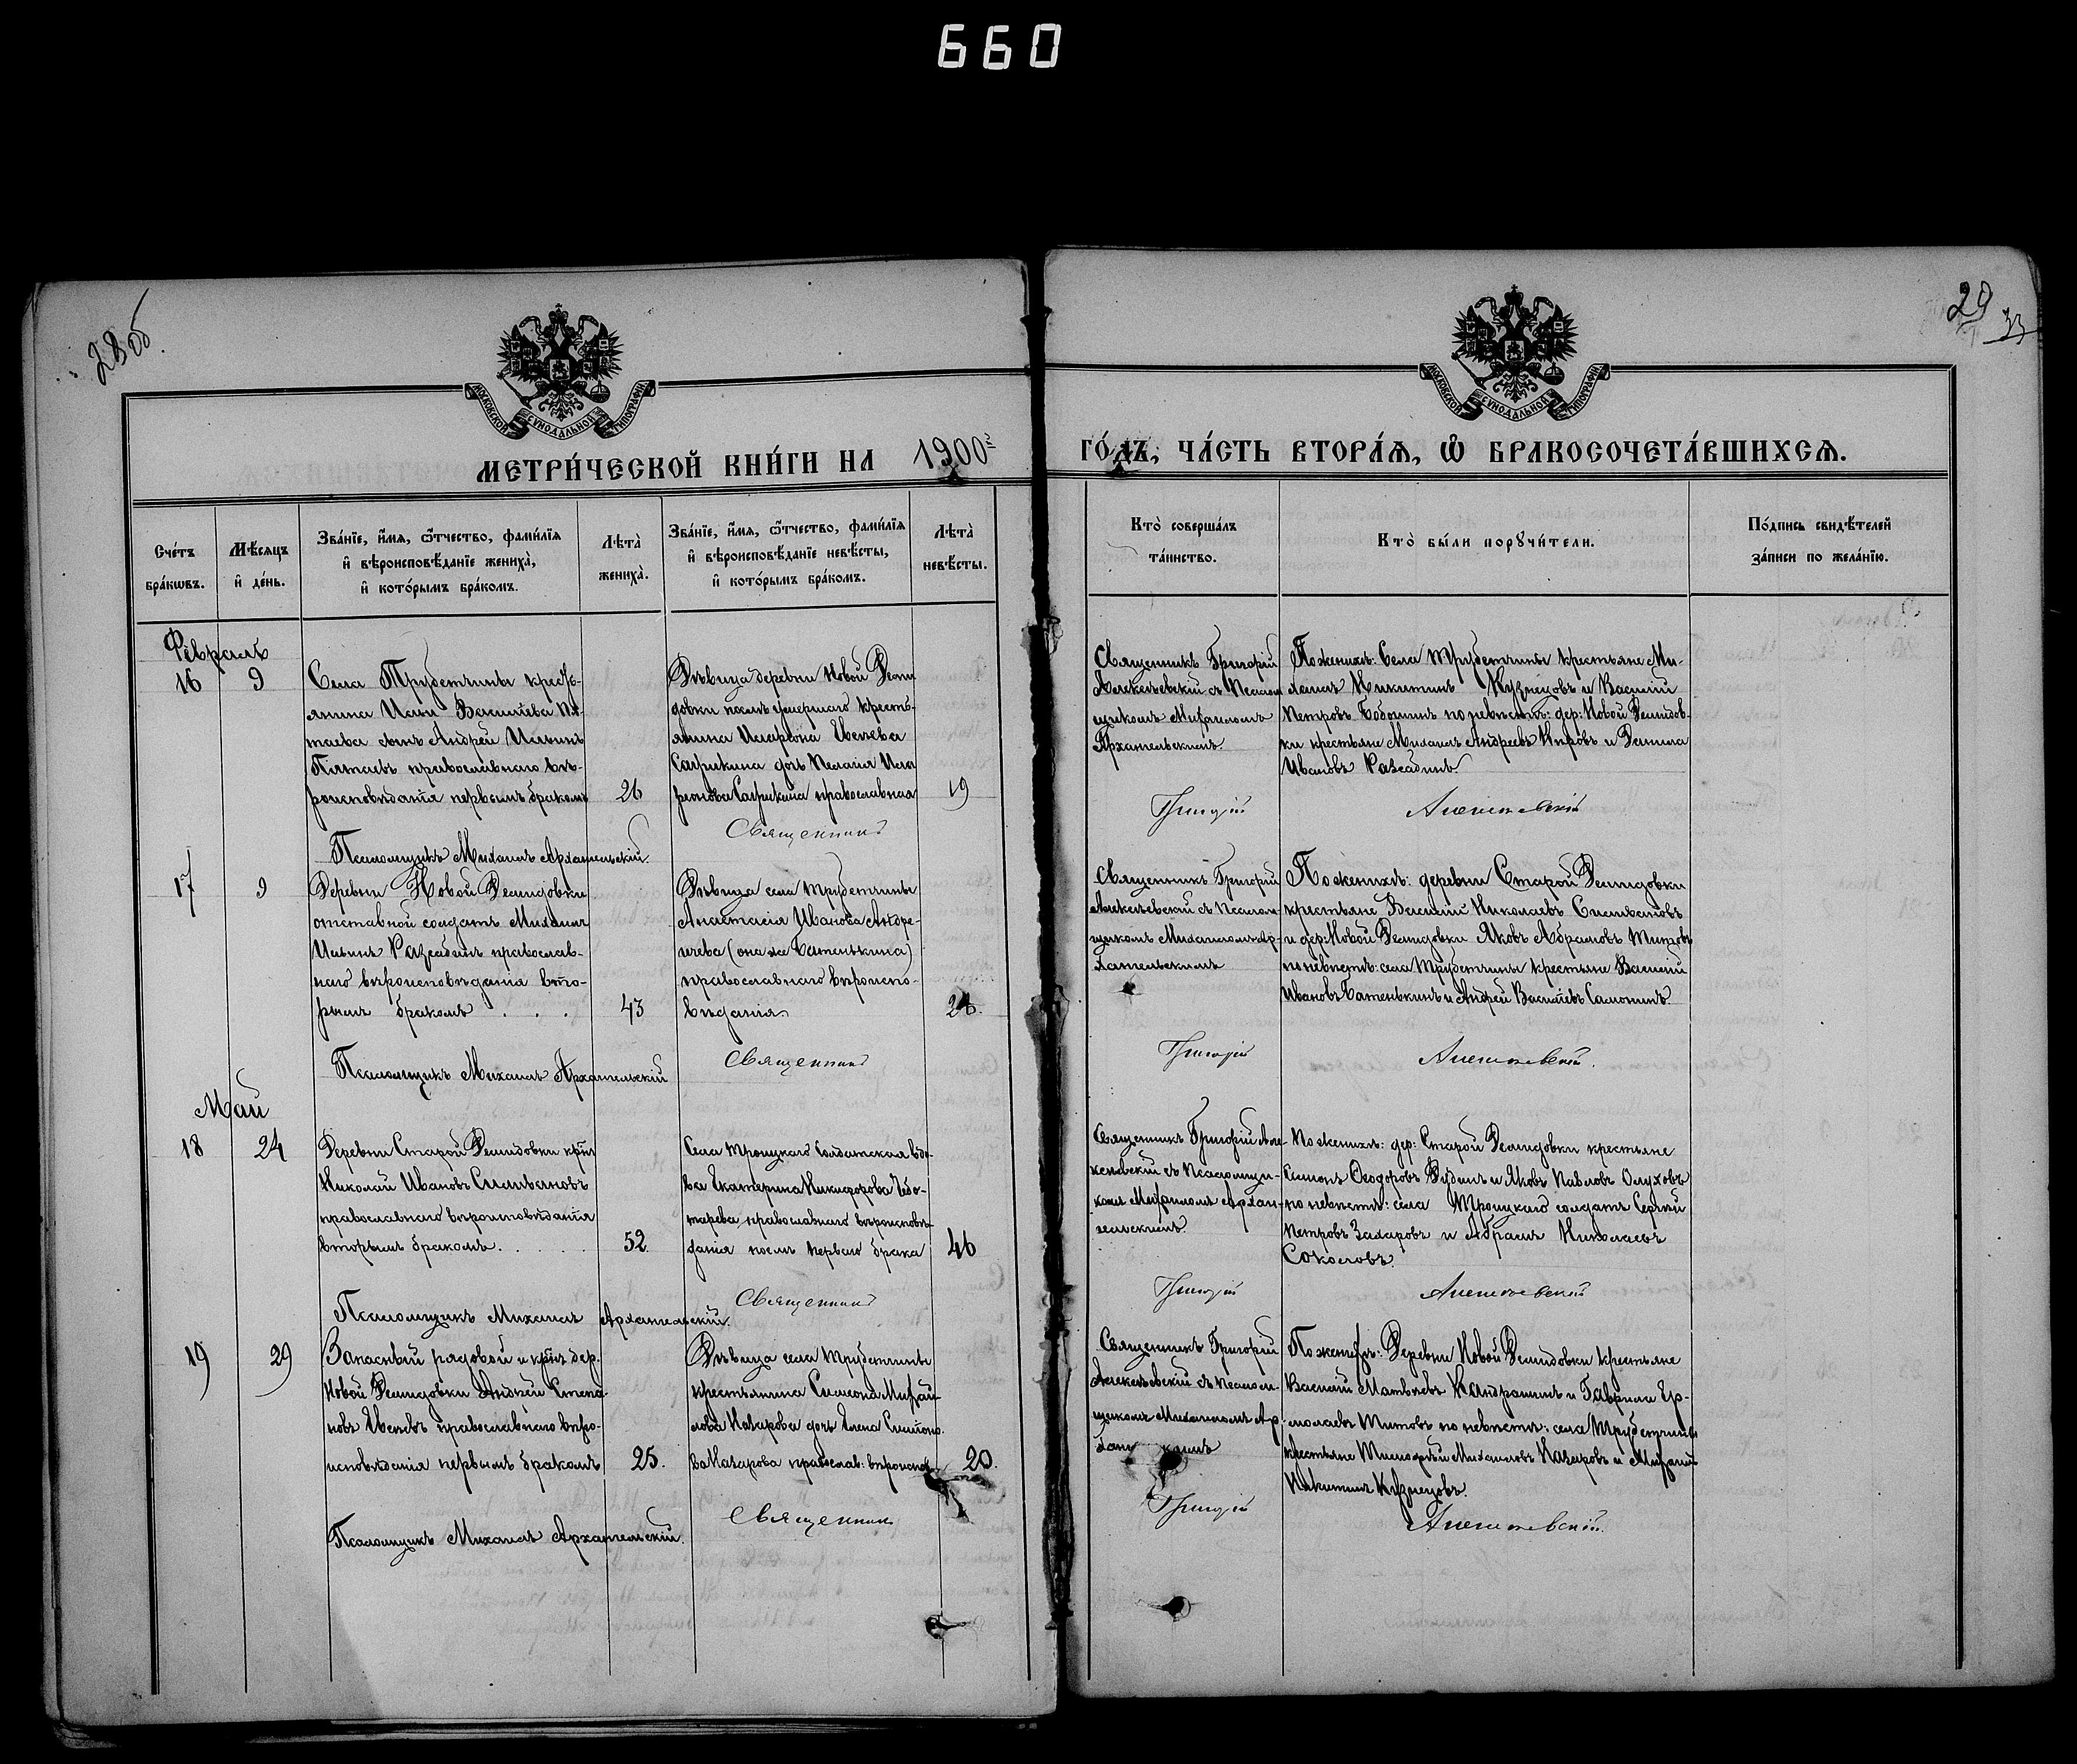 660
28 об.
29
33
МОСКОВСКОЙ СУНОДАЛЬНОЙ ТИПОГРАФІИ
МОСКОВСКОЙ СУНОДАЛЬНОЙ ТИПОГРАФІИ
МЕТРИ́ЧЕСКОЙ КНИ́ГИ НА 1900й
ГО́ДЪ, ЧА́СТЬ ВТОРА́Я, Ѡ҆ БРАКОСОЧЕТА́ВШИХСЯ.
Сче́тъ
бра́кѡвъ.
Мѣ́сяцъ
и҆ де́нь.
Зва́нїе, и҆́мя, ѻ҆́тчество, фами́лїя
и҆ вѣроисповѣ́данїе жениха̀,
и҆ кото́рымъ бра́комъ.
Лѣ́та̀
жениха̀.
Зва́нїе, и҆́мя, ѻ҆́тчество, фами́лїя
и҆ вѣроисповѣ́данїе невѣ́сты,
и҆ кото́рымъ бра́комъ.
Лѣ́та̀
невѣ́сты.
Кто̀ соверша́лъ
та́инство.
Кто̀ бы́ли порꙋчи́тели.
По́дпись свидѣ́телей
за́писи по жела́нїю.
Февраль
16
9
Села Трубетчины кресть-
янина Ильи Васильева Пя-
таева сынъ Андрей Ильинъ
Пятаевъ православнаго вѣ-
роисповѣданія первымъ бракомъ
26
Дѣвица деревни Новой Деми
довки послѣ умершаго кресть-
янина Иларіона Евсѣева
дочь Пелагія Ила
ріонова православная
19
Священникъ Григорій
Алексѣевскій съ Псалом
щикомъ Михаиломъ
Архангельскимъ.
По женихѣ: Села Трубетчины крестьяне Ми-
хаилъ Никитинъ Кузнецовъ и Василій
Петровъ по невѣстѣ: дер: Новой Демидов-
ки крестьяне Михаилъ Андреевъ и Данила
Ивановъ
Священникъ
Григорій
Алексѣевскій
Псаломщикъ Михаилъ Архангельскій.
17
9
Деревни Новой Демидовки
отставной солдатъ Михаилъ
Ильинъ православ-
наго вѣроисповѣданія вто-
рымъ бракомъ . . .
43
Дѣвица села Трубетчины
Анастасія Иванова Андре-
ичева (она же Батенькина)
православнаго вѣроиспо-
вѣданія
28.
Священникъ Григорій
Алексѣевскій съ Псалом-
щикомъ Михаиломъ Ар-
хангельскимъ
По женихѣ: деревни Старой Демидовки
крестьяне Василій Николаевъ Силивановъ
и дер: Новой Демидовки Яковъ Абрамовъ Титовъ
по невѣстѣ: села Трубетчины крестьяне Василій
Ивановъ Батенькинъ и Андрей Васильевъ Самонинъ.
Священникъ
Григорій
Алексѣевскій.
Псаломщикъ Михаилъ Архангельскій
Май
18
24
Деревни Старой Демидовки крнъ
Николай Ивановъ Силивановъ
православнаго вѣроисповѣданія
вторымъ бракомъ. . . . .
52.
Села Троицкаго Солдатская вдо-
ва Екатерина Никифорова
православнаго вѣроисповѣ-
данія послѣ перваго брака
46
Священникъ Григорій Але-
ксѣевскій съ Псаломщи-
комъ Михаиломъ Архан-
гельскимъ.
По женихѣ: дер: Старой Демидовки крестьяне
Симонъ Ѳеодоровъ и Яковъ Павловъ
по невѣстѣ: села Троицкаго солдатъ Сергѣй
Петровъ Захаровъ и Абрамъ Николаевъ
Соколовъ.
Священникъ
Григорій
Алексѣевскій
Псаломщикъ Михаилъ Архангельскій.
19
29
Запасный рядовой и крнъ дер.
Новой Демидовки Андрей Степа-
новъ Евсѣевъ православнаго вѣро-
исповѣданія первымъ бракомъ
25.
Дѣвица села Трубетчины
крестьянина Симеона Михаи-
лова Назарова дочь Елена Симеоно-
ва Назарова православ: вѣроиспов.
20.
Священникъ Григорій
Алексѣевскій съ Псалом-
щикомъ Михаиломъ Ар-
По женихѣ: Деревни Новой Демидовки крестьяне
Василій Матвѣевъ Кандрашинъ и Гаврила Ер-
молаевъ Титовъ по невѣстѣ: села Трубетчины
крестьяне Тимофѣй Михаиловъ Назаровъ и Михаилъ
Никитинъ Кузнецовъ.
Священникъ
Григорій
Алексѣевскій.
Псаломщикъ Михаилъ Архангельскій.